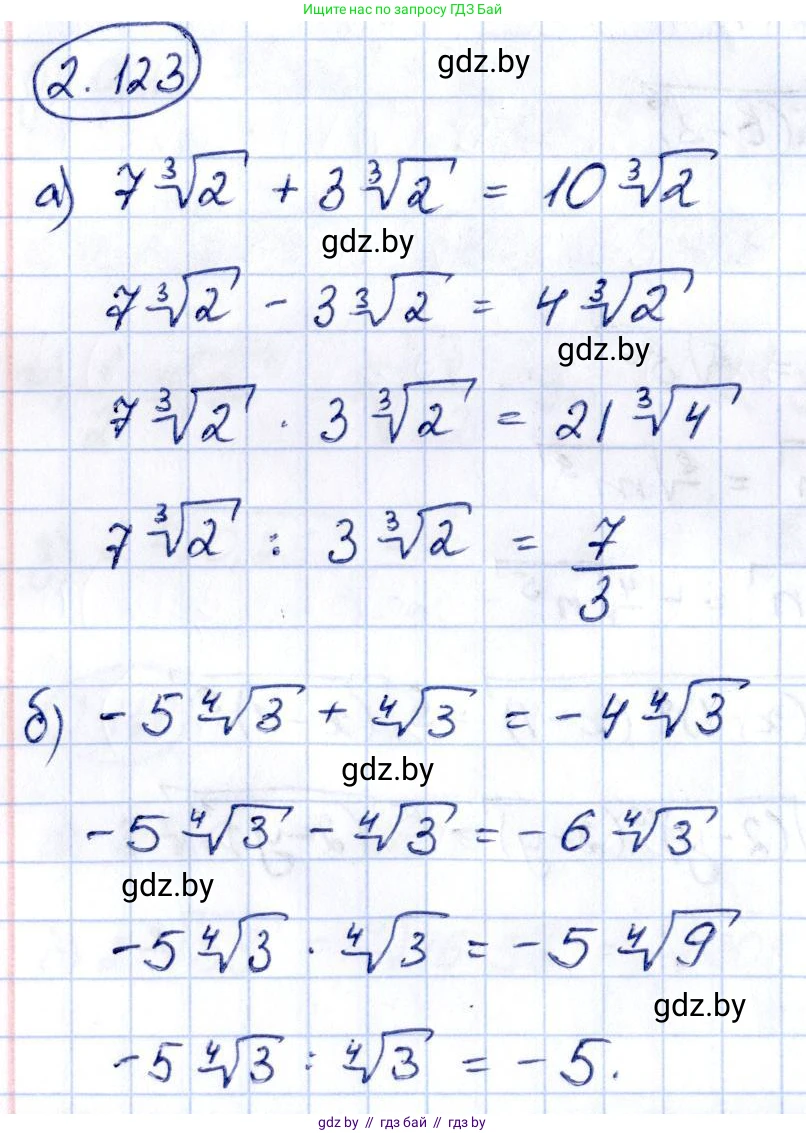 Ищите нас по запросу ГДЗ Бай
2.123
gdz.by
а) 7∛2 + 3∛2 = 10∛2
gdz.by
7∛2 - 3∛2 = 4∛2
gdz.by
7∛2 · 3∛2 = 21∛4
7∛2 : 3∛2 = 7/3
б) -5∜3 + ∜3 = -4∜3
gdz.by
-5∜3 - ∜3 = -6∜3
gdz.by
-5∜3 · ∜3 = -5∜9
gdz.by
-5∜3 : ∜3 = -5.
gdz by // гдз бай // гдз by